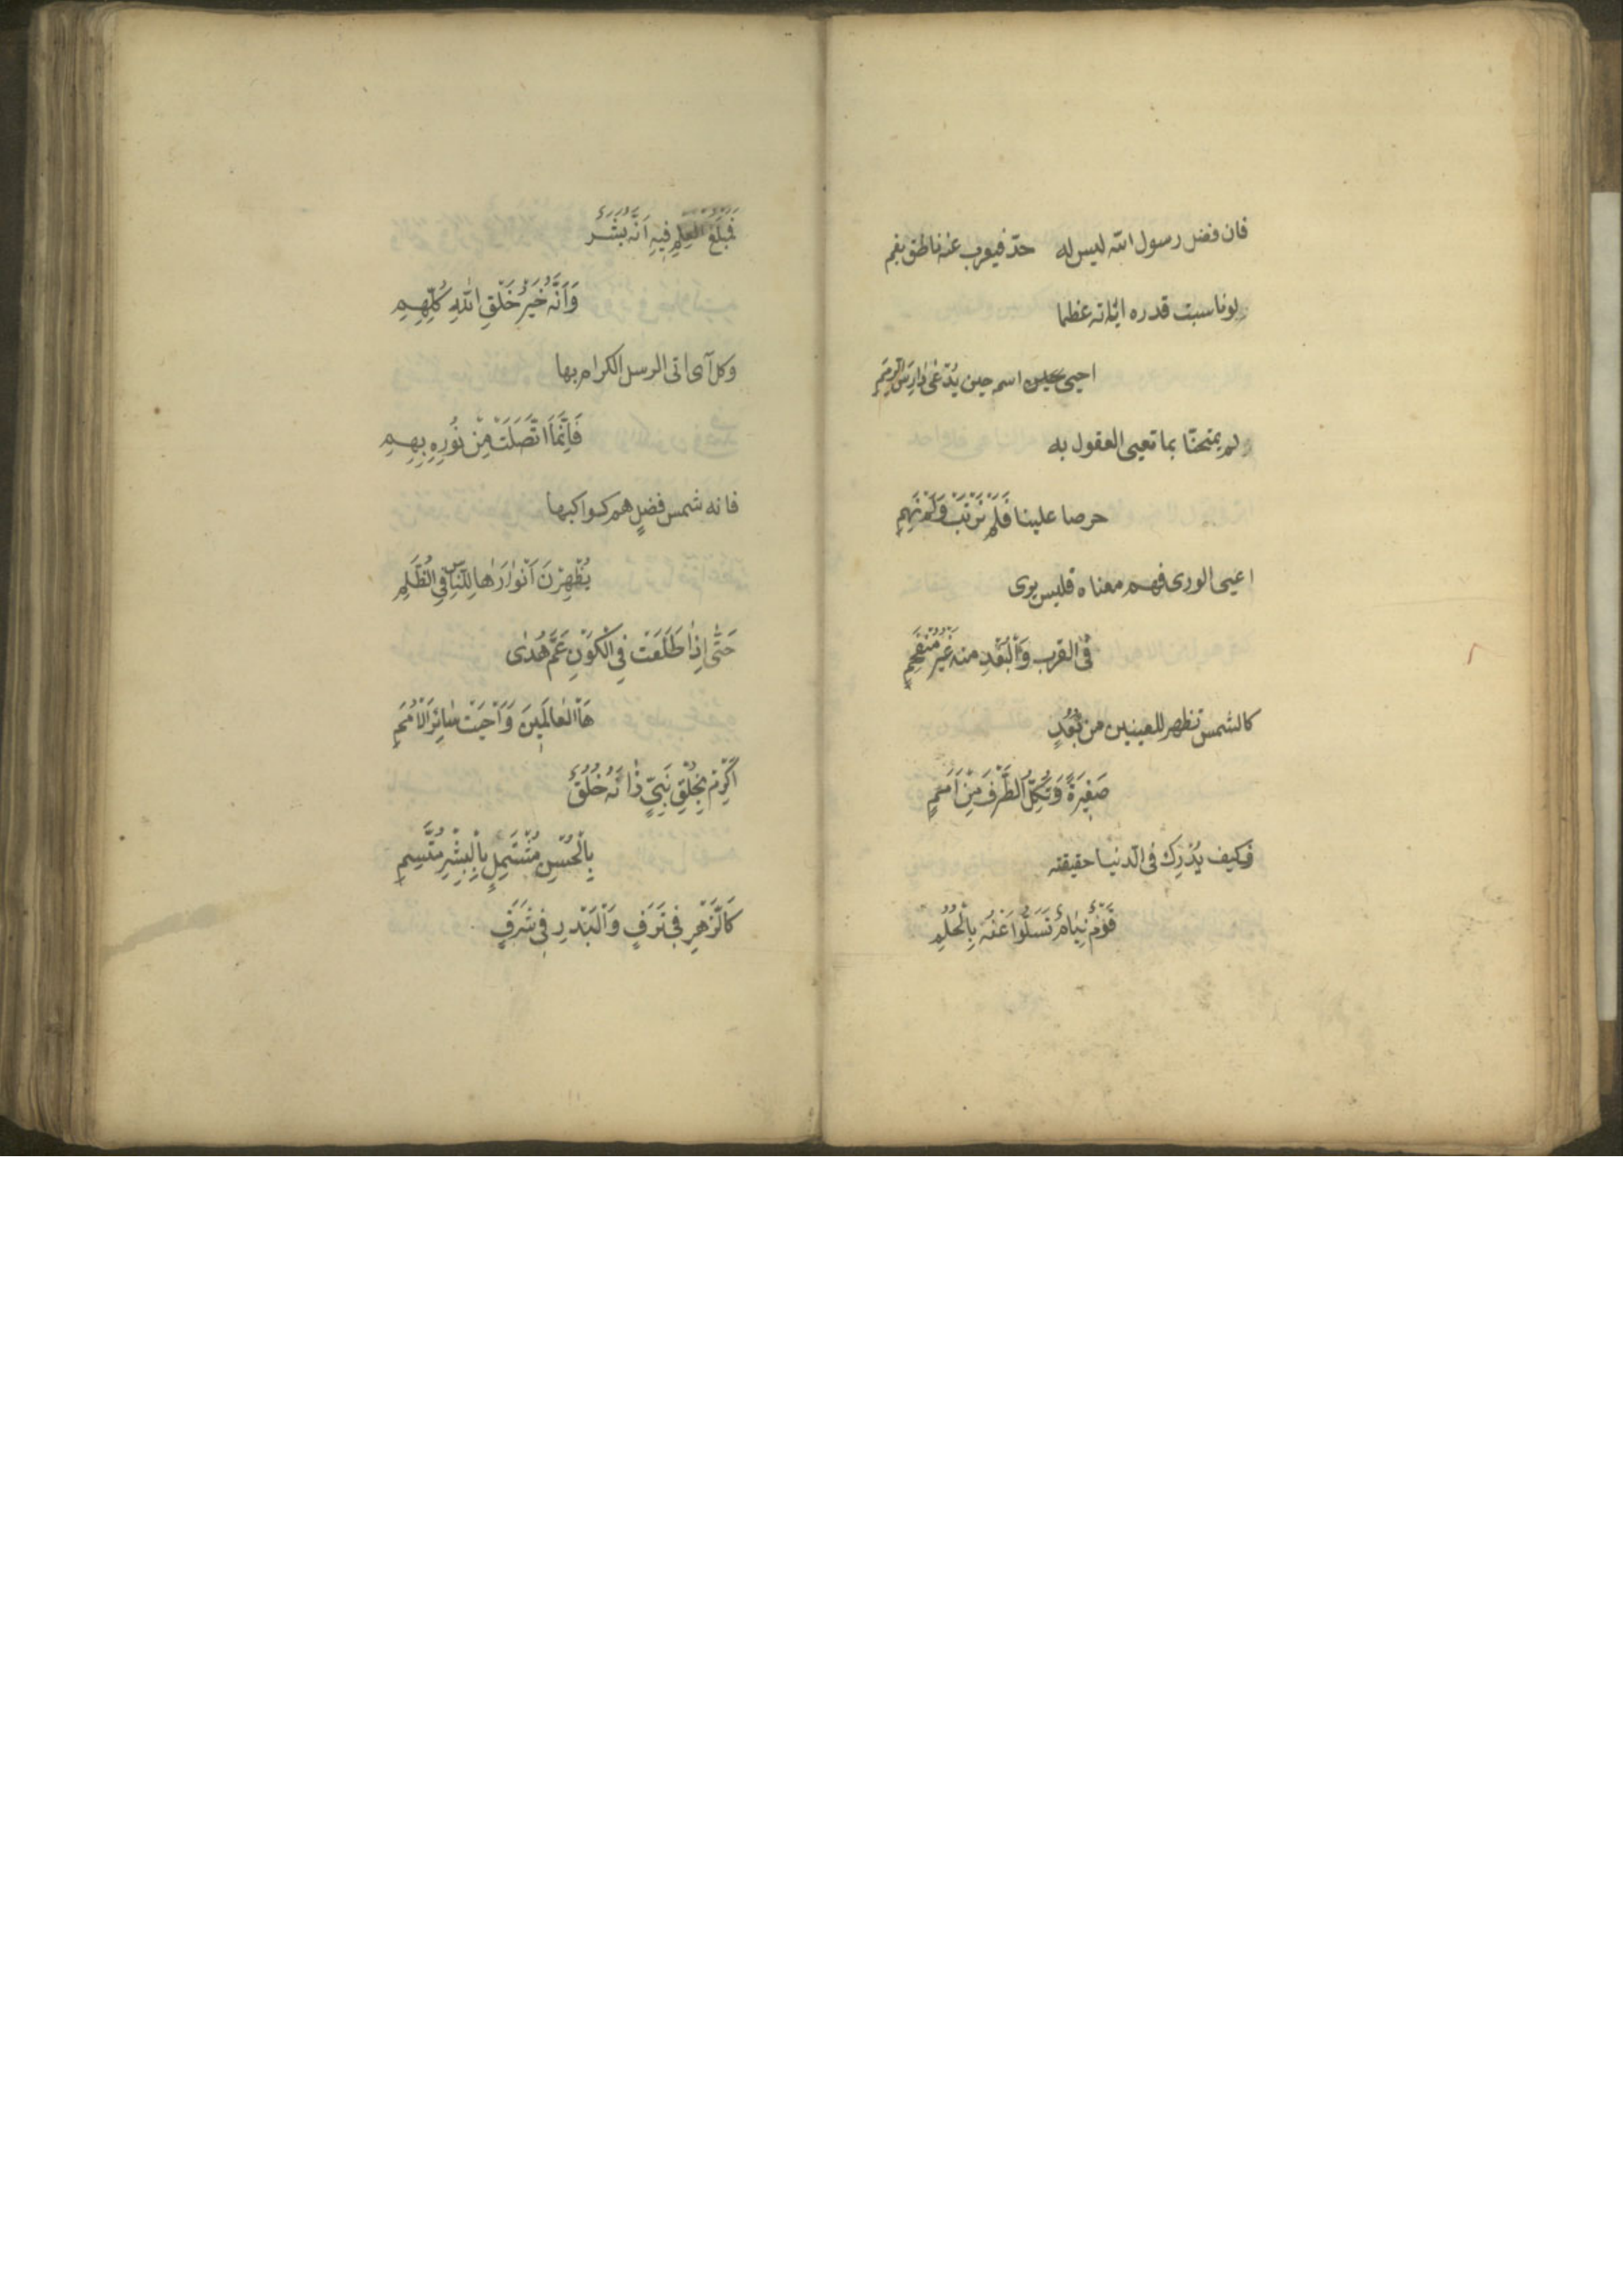 فان فضل رسول الله ليس له حدّ فيعرب عنه ناطق بفم
لوناسبت قدره اياته عظما
احيى اسمه حين يُدْعٰى دَارِسَ الرِّمَمِ
لم يمتحنّا بما تعيى العقول به
حرصا علينا فَلَمْ نَرْتَبْ وَلَمْ نَهِمِ
اعيى الورى فهم معناه فليس يرى
فى القرب وَالْبُعْدِ منه غَيْرُ مُنْفَحِمِ
كالشمس تظهر للعينين من بُعُدٍ
صَغِيرَةً وَتُكِلُّ الطَّرْفَ مِنْ اَمَمٍ
فكيف يُدْرِكُ فى الدنيا حقيقته
قَوْمٌ نِيَامٌ تَسَلَّوْا عَنْهُ بِالْحُلُمِ
فَمَبْلَغُ الْعِلْمِ فِيهِ اَنَّهُ بَشَرٌ
وَاَنَّهُ خَيْرُ خَلْقِ اللّٰهِ كُلِّهِمِ
وكل آى اتى الرسل الكرام بها
فَاِنَّمَا اتَّصَلَتْ مِنْ نُورِهِ بِهِمِ
فانه شمس فضلٍ هم كواكبها
يُظْهِرْنَ اَنْوَارَهَا لِلنَّاسِ فِى الظُّلَمِ
حَتّٰى اِذَا طَلَعَتْ فِى الْكَوْنِ عَمَّ هُدٰى
هَا الْعَالَمِينَ وَاَحْيَتْ سَائِرَ الْاُمَمِ
اَكْرِمْ بِخَلْقِ نَبِىٍّ زَانَهُ خُلُقٌ
بِالْحُسْنِ مُشْتَمِلٍ بِالْبِشْرِ مُتَّسِمِ
كَالزَّهْرِ فِى تَرَفٍ وَالْبَدْرِ فِى شَرَفٍ